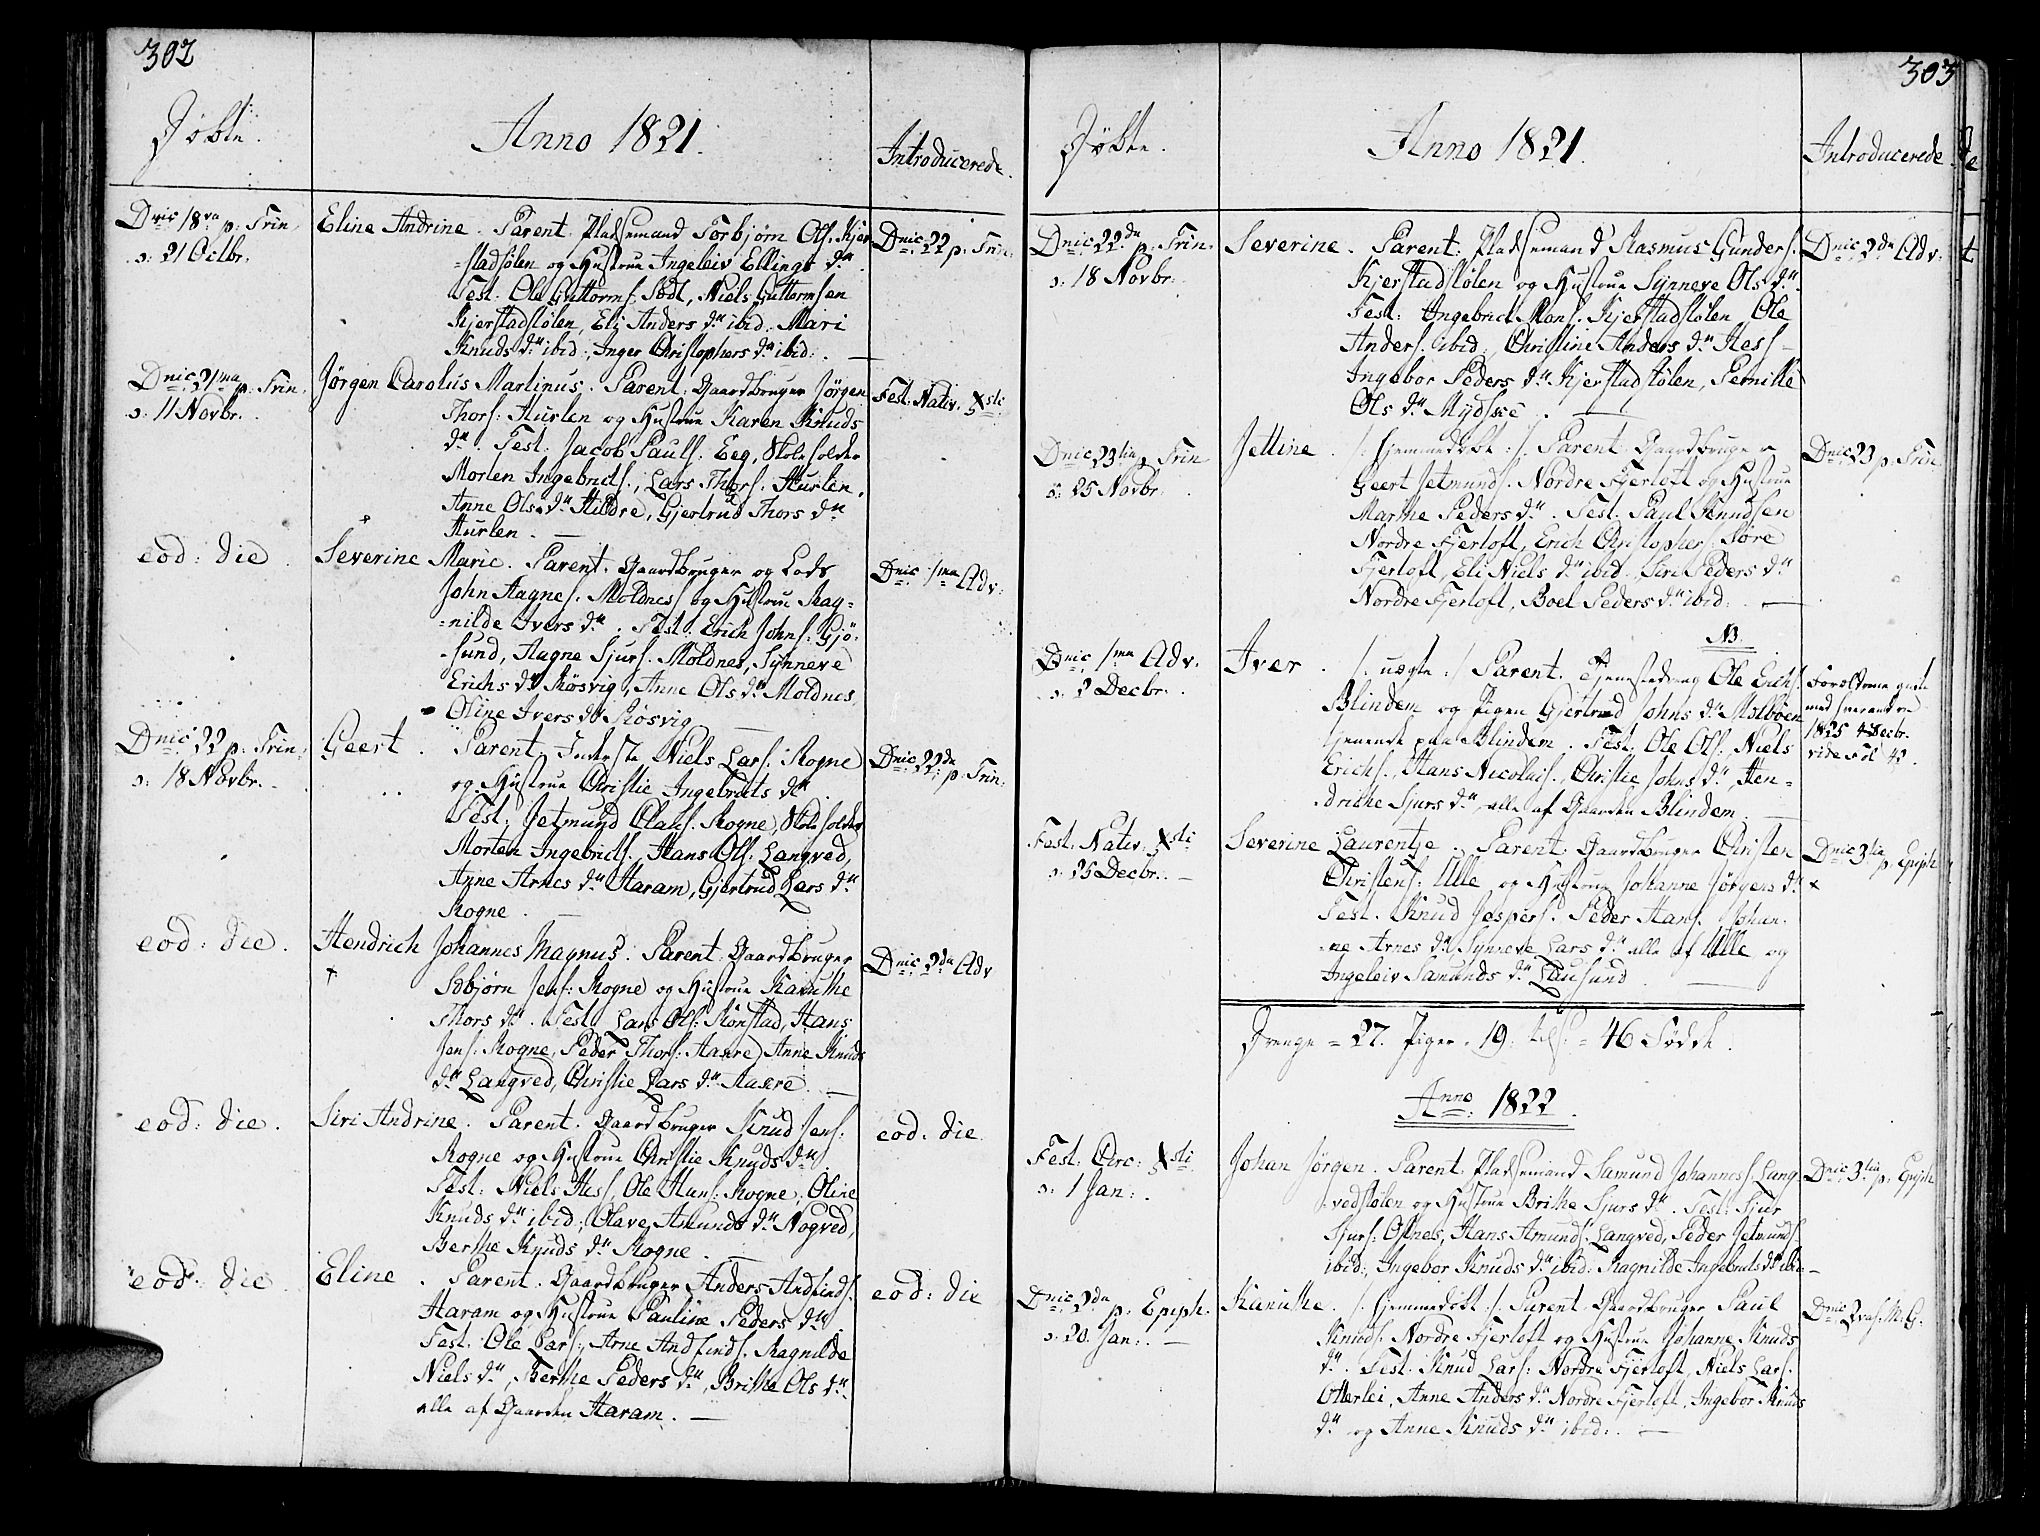 302
Døbte.
Anno 1821.
Introducerede.
Dnic 18va p: Trin.
ɔ: 21 Octbr.
Eline Andrine. Parent. Pladsemand Torbjørn Ols. Kjer
stadsølen og Hustrue Ingeleiv Ellings d:r.
Test: Ole Guttorms. Sødt, Niels Guttormsen
Kjerstadstølen, Eli Anders d:r ibid:, Mari
Knuds d:r ibid:, Inger Christophers d:r ibid:. —
Dnic: 22 p: Trin:
Dnic: 21ma p: Trin.
ɔ: 11 Novbr.
Jørgen Carolus Martinus. Parent: Gaardbruger Jørgen
Thors: Hurlen og Hustrue Karen Knuds
d:r. Test: Jacob Pauls. Eeg, Skoleholder
Morten Ingebrits., Lars Thors. Hurlen,
Anne Olse d:r Hildre, Gjertrud Thors d:r
Hurlen. —
Fest: Nativ: Xsti
eod: die.
Severine Marie. Parent. Gaardbruger og Lods
John Aagnes. Moldnes og Hustrue Rag=
=nilde Ivers d:r. Test: Erich Johns: Gjø=
sund, Aagne Sjurs. Moldnes, Synneve
Erichs d:r Røsvig, Anne Ols d:r Moldnes,
Oline Ivers d:r Røsvig. —
Dnic: 1ma Adv:
Dnic: 22 p: Trin:
ɔ: 18 Novbr.
Geert. Parent. Inderste Niels Lars. Rogne
og Hustrue Christie Ingebrits d:r.
Test: Jetmund Claus. Rogne, Skoleholder
Morten Ingebrids., Hans Ols. Langved,
Anne Arnes d:r Haram, Gjertrud Lars d:r
Rogne. —
Dnic: 22da p: Trin:
eod: die.
Hendrich Johannes Magnus. Parent: Gaardbruger
Esbjørn Jens: Rogne og Hustrue Karuthe
Thors d:r. Test: Lars Ols: Rønstad, Hans
Jens: Rogne, Peder Thors: Aakre, Anne Knuds
d:r Langved, Christie Lars d:r Aakre. —
Dnic: 2da Adv
eod: die.
Siri Andrine. Parent. Gaardbruger Knud Jens:
Rogne og Hustrue Christie Knuds d:r.
Test: Niels Hess, Ole Hans: Rogne, Oline
Knuds d:r ibid:, Olave Amunds d:r Nogved,
Berthe Knuds d:r Rogne. —
eod: die.
eod: die
Eline. Parent. Gaardbruger Anders Andfinds.
Haram og Hustrue Pauline Peders d:r.
Test: Ole Lars:, Arne Andfinds. Ragnilde
Niels d:r, Berthe Peders d:r, Brithe Ols d:r
alle af Gaarden Haram. —
eod: die
303
Døbte.
Anno 1821.
Introducerede.
Dnic 22da p: Trin.
ɔ: 18 Novbr.
Severine. Parent. Pladsemand Rasmus Gunders.
Kjerstadstølen og Hustrue Synneve Ols d:r.
Test: Ingebrict Mons. Kjerstadstølen, Ole
Anders. ibid:, Christine Anders d:r Hess —
Ingebor Peders d:r Kjerstadstølen, Pernille
Ols d:r Mydske. —
Dnic: 2da Adv:
Dnic 23tia p: Trin
ɔ: 25 Novbr.
Jettine. /: hjemmedøbt :/. Parent. Gaardbruger
Geert Jetmunds. Nordre Fjerloft og Hustrue
Marine Peders d:r. Test. Paul Knudsen
Nordre Fjerloft, Erich Christophers: Søre
Fjerloft, Eli Niels d:r ibid. Siri Peders d:r
Nordre Fjerloft, Boel Peders d:r ibid:. —
Dnic: 23 p: Trin
NB.
Dnic 1ma Adv.
ɔ: 2 Decbr.
Iver. /: uægte :/ Parent. Tjenestedreng Ole Erichs.
Blindem og Pigen Gjertrud Johns d:r Molbøen
tjenende paa Blindem. Test. Ole Ols. Niels
Erichs., Hans Nicolais., Christie Johns d:r, Hen=
driche Sjurs d:r, alle af Gaarden Blindem. —
Forældrene givte
med hverandre
1825 4 Decbr.
vide Fol 42.
Fest. Nativ: Xsti
ɔ: 25 Decbr. —
Severine Laurentje. Parent: Gaardbruger Christen
Christens. Ulle og Hustrue Johanne Jørgens d:r
Test. Knud Jespers. Peder Hans. Johan=
ne Arnes d:r Synneve Lars d:r alle af Ulle og
Ingeleiv Samunds d:r Lausund. —
Dnic 3tia p: Epiph
Drenge = 27. Piger = 19. = 46 Fødte.
Anno 1822.
Fest: Circ: Xsti
ɔ: 1 Jan:.
Johan Jørgen. Parent. Pladsemand Samund Johanness. Lang
vedstølen og Hustrue Brithe Sjurs d:r. Test: Sjur
Sjurs: Otnes, Hans Amunds. Langved, Peder Jetmunds.
ibid:, Ingebor Knuds d:r ibid: Ragnilde Ingebrits d:r ibid —
Dnic: 3tia p: Epiph
Dnic: 2da p: Epiph.
ɔ: 20. Jan:. —
Karuthe. /: hjemmedøbt :/. Parent. Gaardbruger Paul
Knuds. Nordre Fjerloft og Hustrue Johanne Knuds
d:r. Test. Knud Lars: Nordre Fjerloft, Niels Lars:
Otterlei, Anne Anders d:r Nordre Fjerloft, Ingebor Knuds
d:r og Anne Knuds d:r ibid:. —